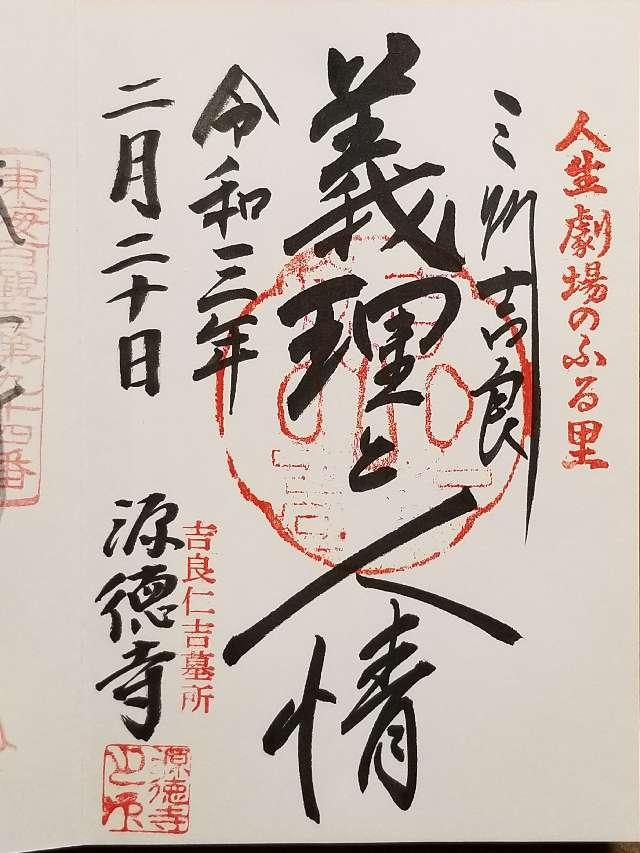 人生劇場のふる里
三州吉良
義理と人情
令和三年
二月二十日
吉良仁吉墓所
源徳寺
源徳寺